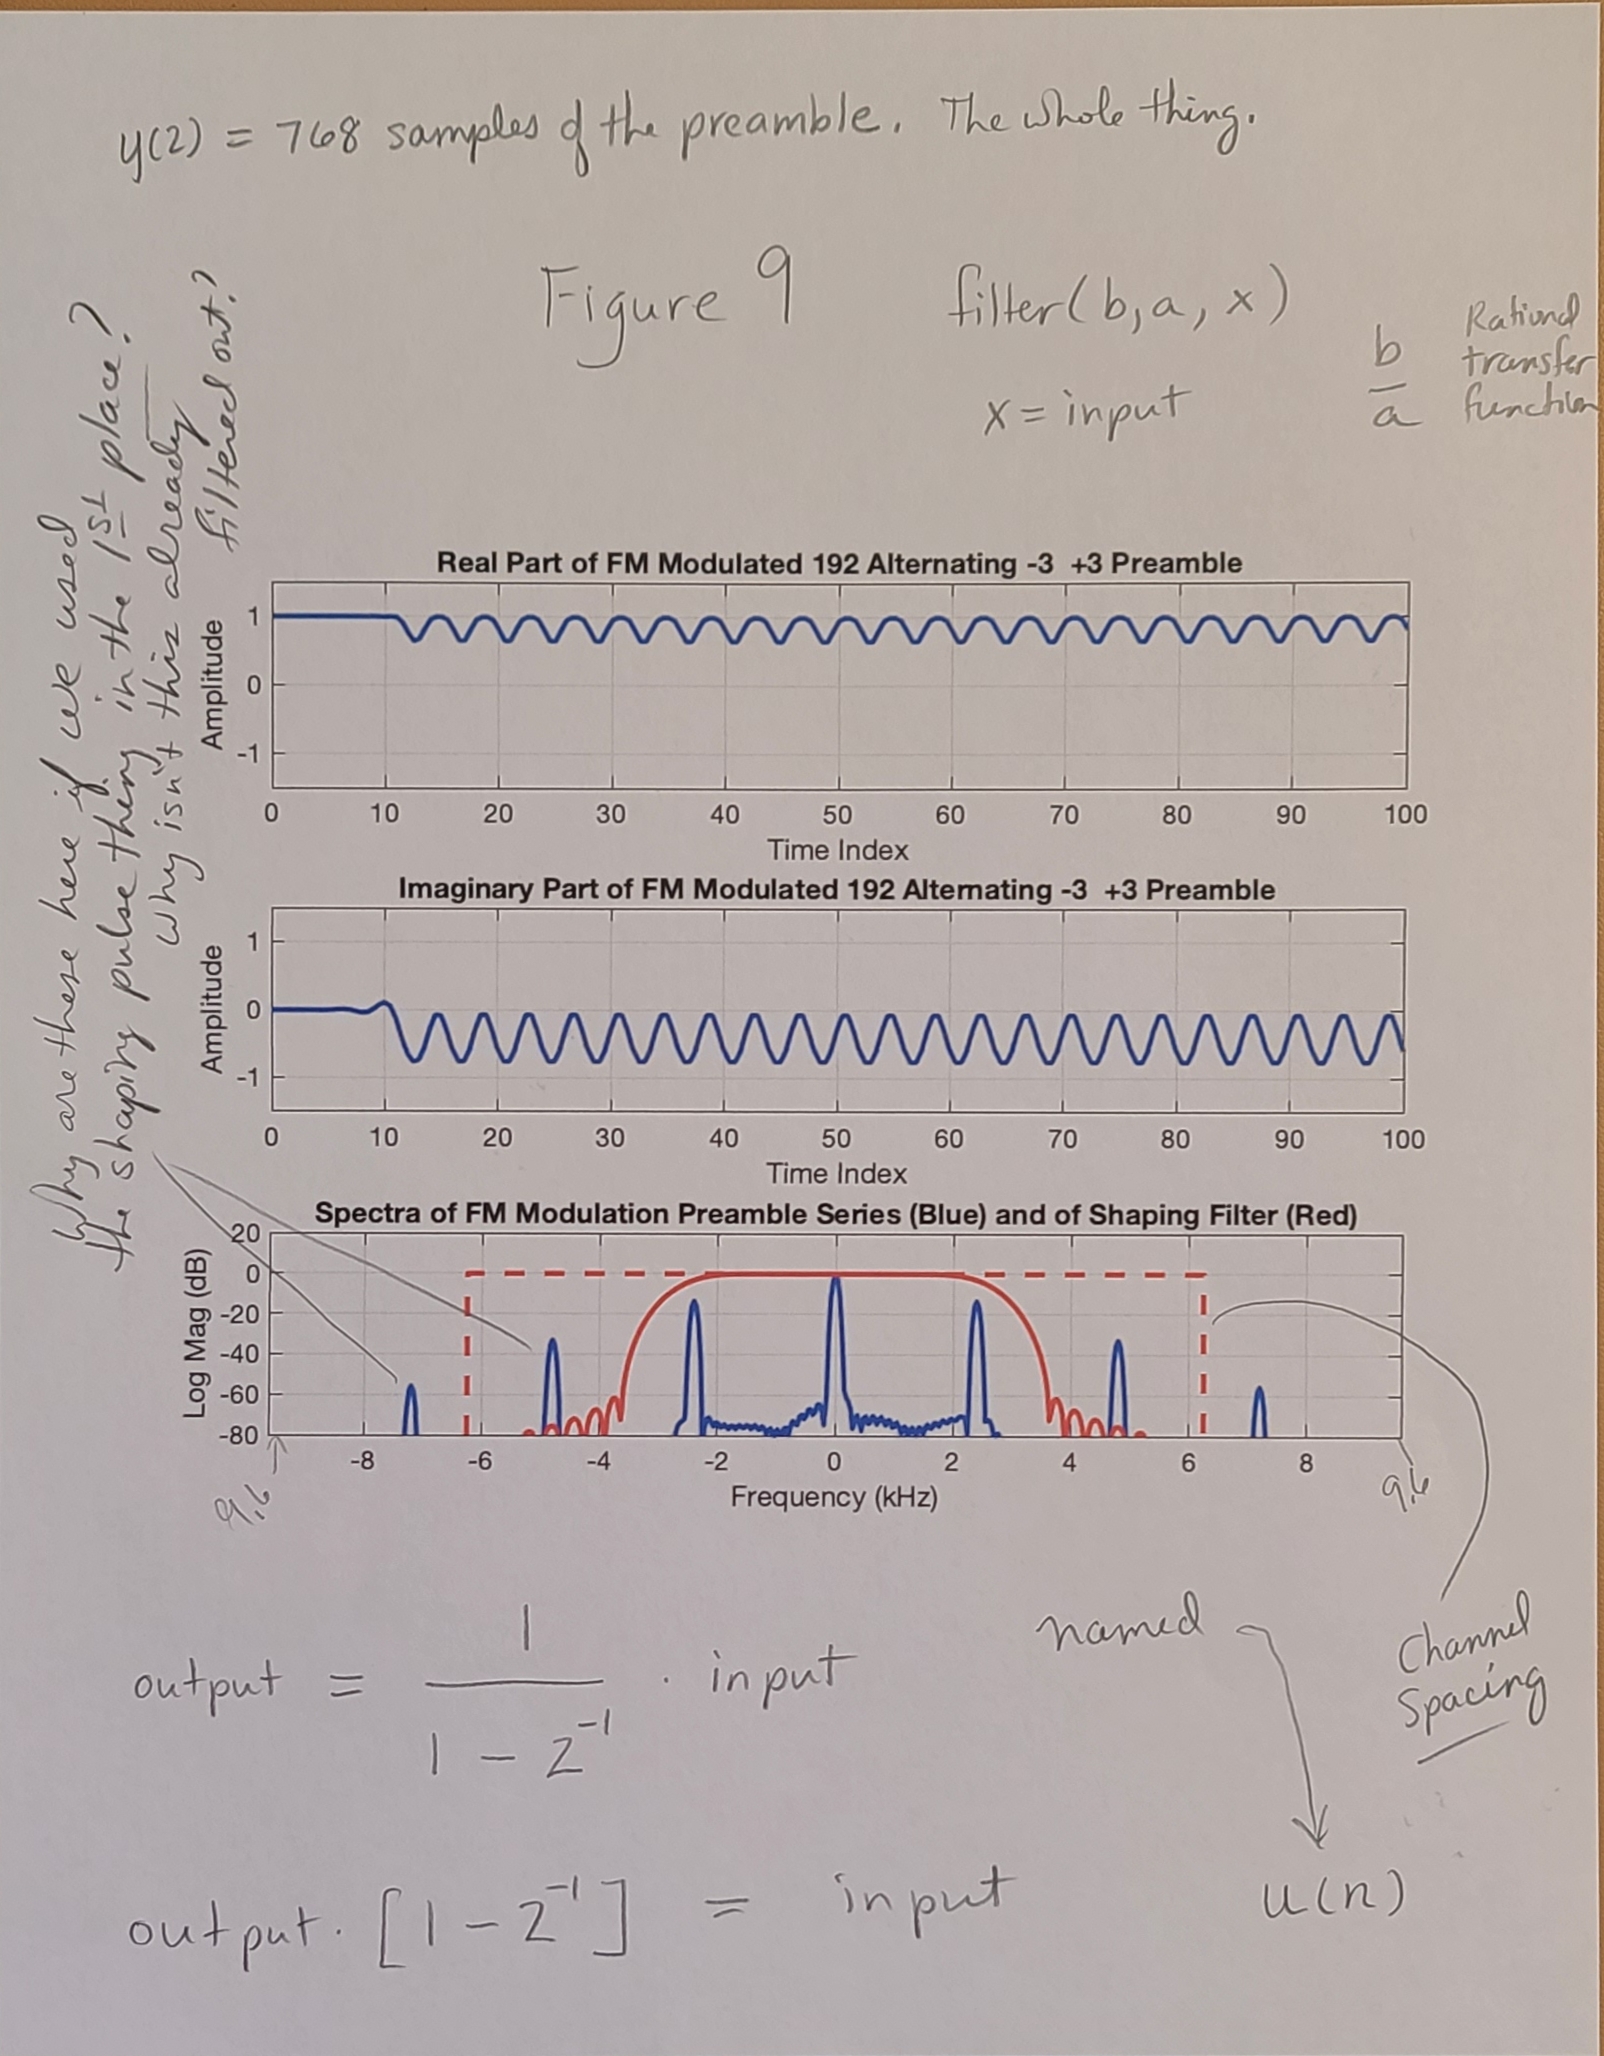 y(2) = 768 samples of the preamble. The whole thing.
Figure 9
filter(b,a,x)
x = input
b
a
Rational
transfer
function
Why are these here if we used
the shaping pulse thing in the 1st place?
Why isn't this already
filtered out?
Real Part of FM Modulated 192 Alternating -3 +3 Preamble
Amplitude
1
0
-1
0 10 20 30 40 50 60 70 80 90 100
Time Index
Imaginary Part of FM Modulated 192 Alternating -3 +3 Preamble
Amplitude
1
0
-1
0 10 20 30 40 50 60 70 80 90 100
Time Index
Spectra of FM Modulation Preamble Series (Blue) and of Shaping Filter (Red)
Log Mag (dB)
20
0
-20
-40
-60
-80
-8 -6 -4 -2 0 2 4 6 8
Frequency (kHz)
9.6
9.6
output = 1 / 1 - z⁻¹ · input
named
Channel
Spacing
output · [1 - z⁻¹] = input
u(n)